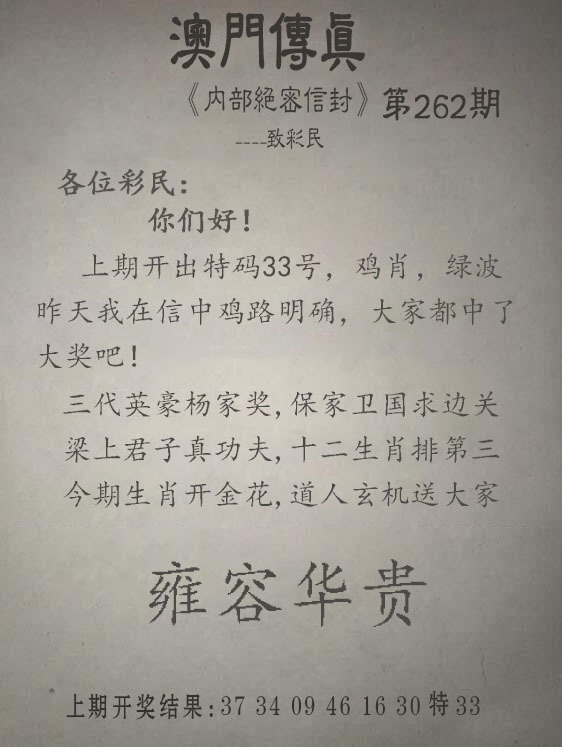 澳門傳眞
《内部絕密信封》第262期
----致彩民
各位彩民：
你们好！
上期开出特码33号，鸡肖，绿波
昨天我在信中鸡路明确，大家都中了
大奖吧！
三代英豪杨家奖,保家卫国求边关
梁上君子真功夫,十二生肖排第三
今期生肖开金花,道人玄机送大家
雍容华贵
上期开奖结果:37 34 09 46 16 30 特 33